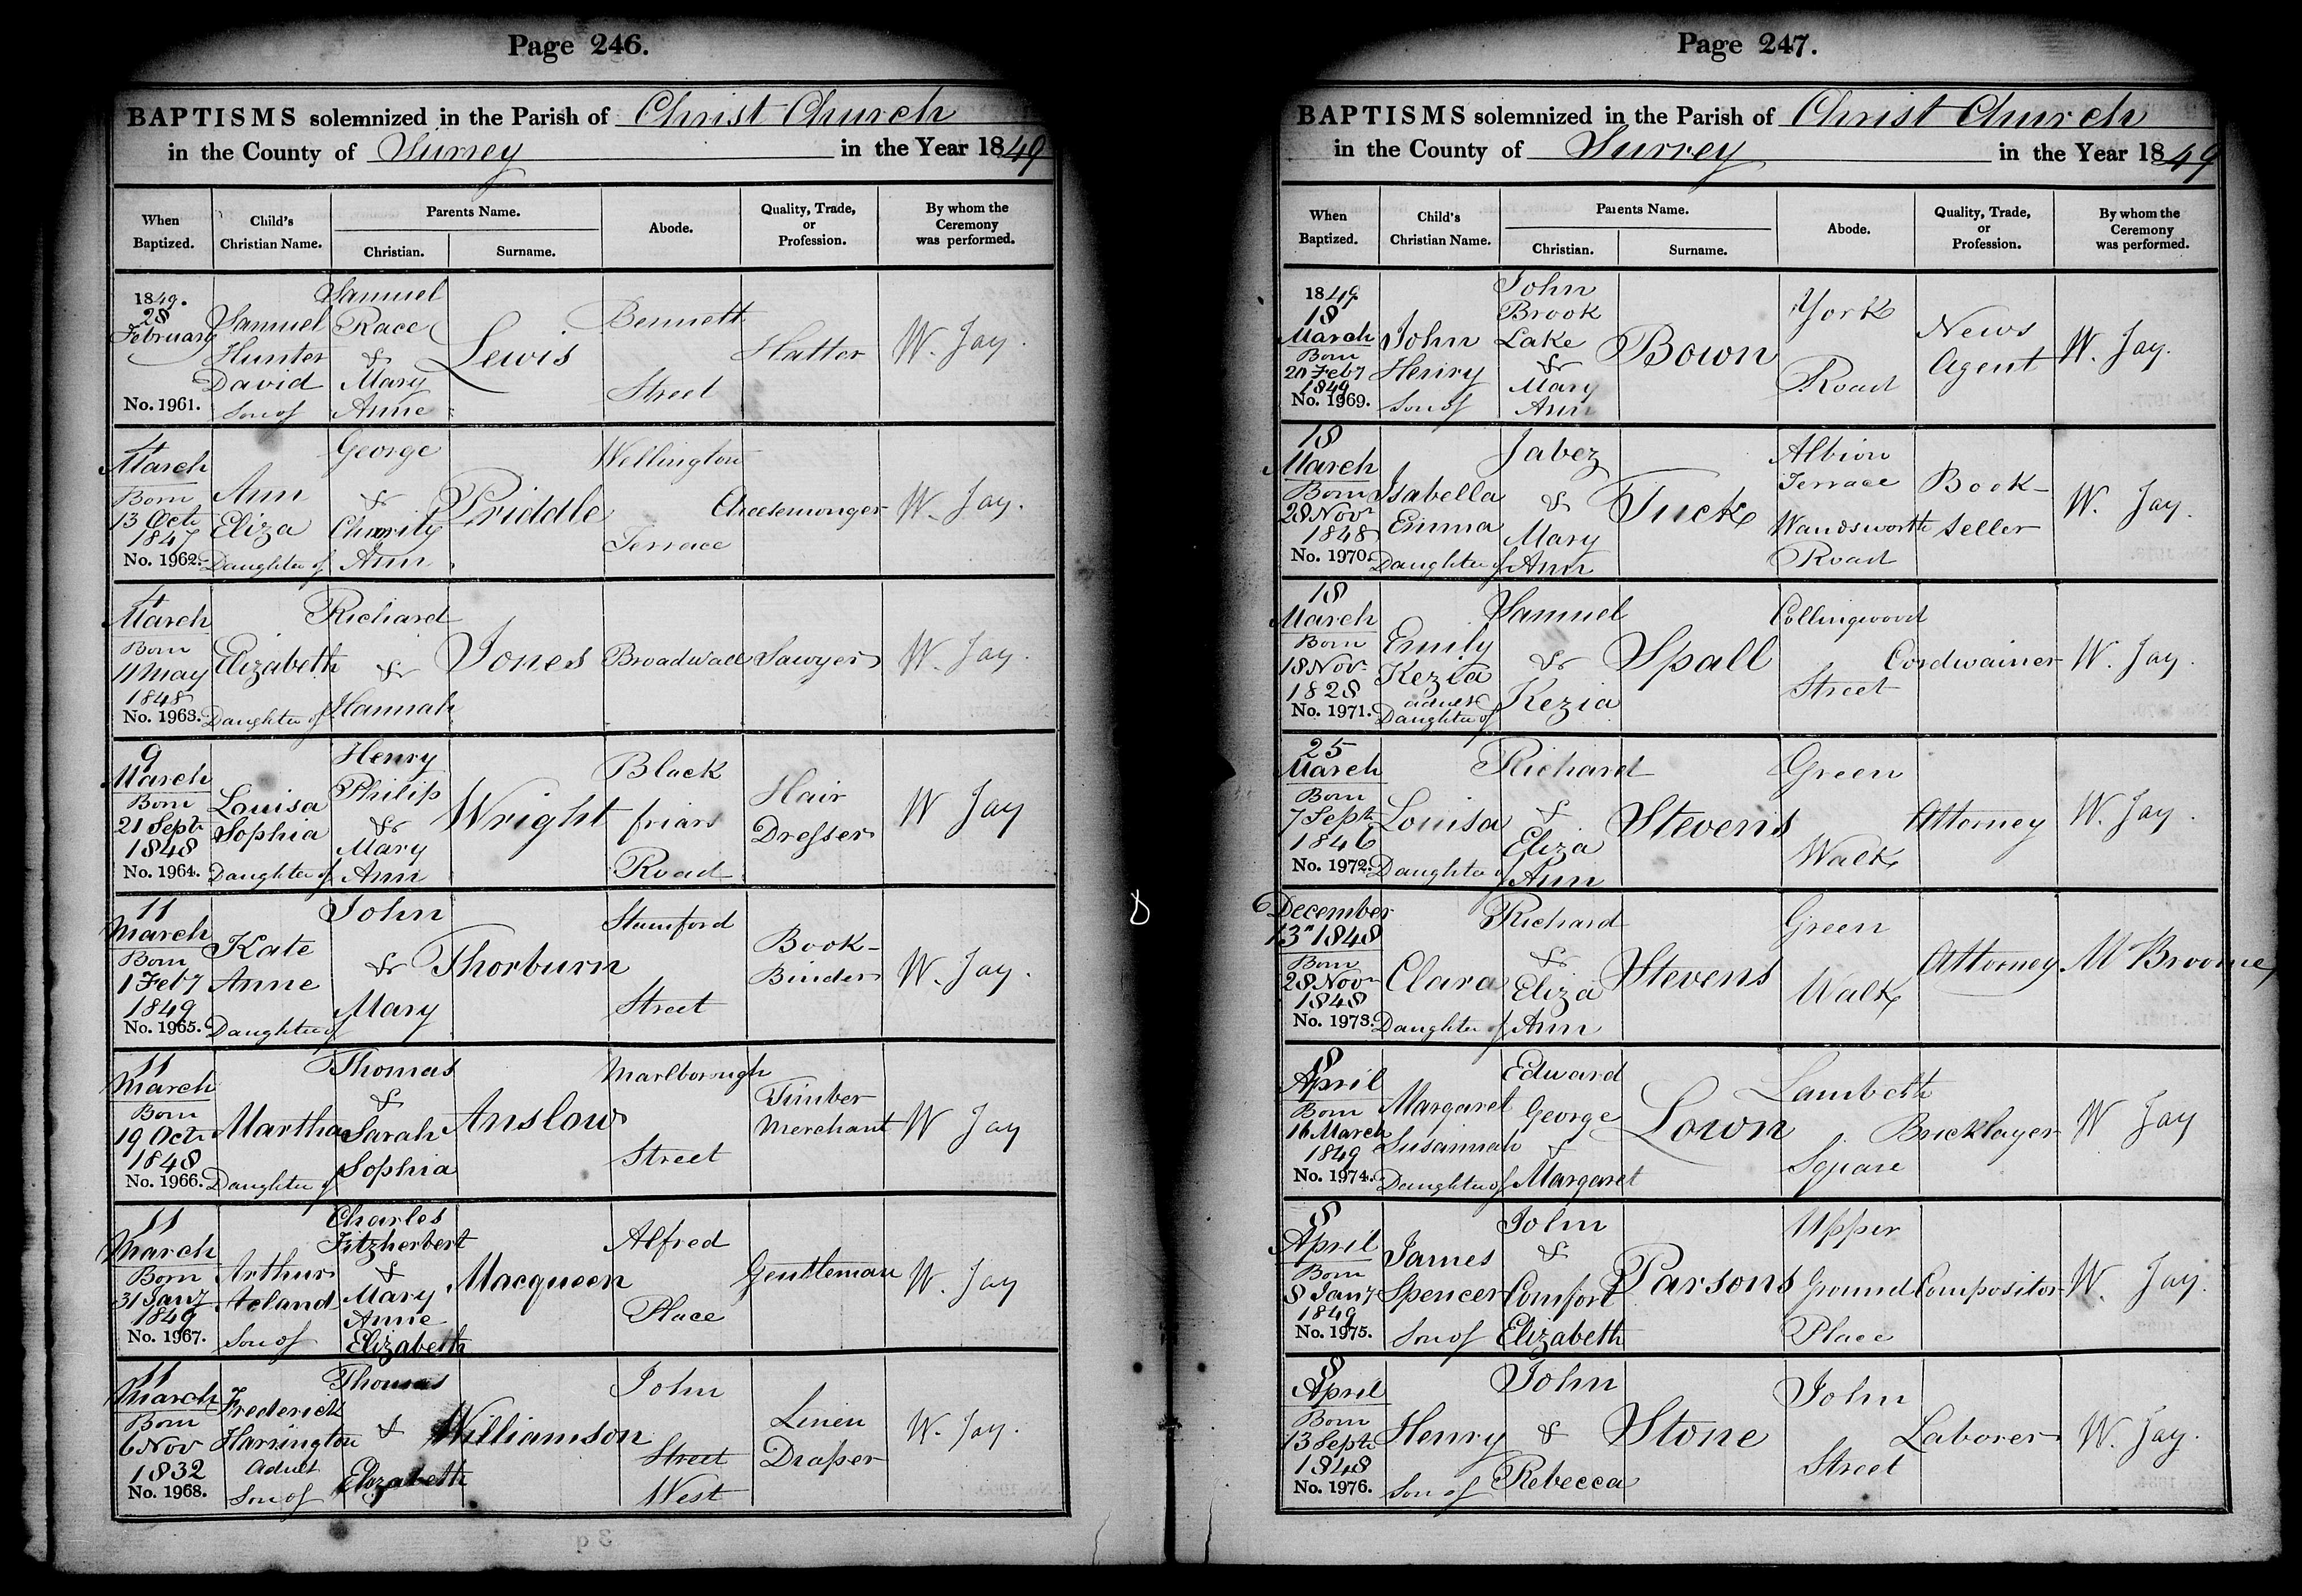 Page 246.
BAPTISMS solemnized in the Parish of Christ Church
in the County of Surrey in the Year 1849
When Baptized. Child's Christian Name. Parents Name. Christian. Surname. Abode. Quality, Trade, or Profession. By whom the Ceremony was performed.
1849. 28 February No. 1961. Samuel Hunter David Son of Samuel Race & Mary Anne Lewis Bennett Street Hatter W. Jay.
4 March Born 13 Octr 1847 No. 1962. Ann Eliza Daughter of George & Charity Ann Priddle Wellington Terrace Cheesemonger W. Jay.
4 March Born 11 May 1848 No. 1963. Elizabeth Daughter of Richard & Hannah Jones Broadwall Sawyer W. Jay.
9 March Born 21 Septr 1848 No. 1964. Louisa Sophia Daughter of Henry Philip & Mary Ann Wright Black friars Road Hair Dresser W Jay
11 March Born 1 Feby 1849 No. 1965. Kate Anne Daughter of John & Mary Thorburn Stamford Street Book-Binder W. Jay.
11 March Born 19 Octr 1848 No. 1966. Martha Daughter of Thomas & Sarah Sophia Anslow Marlborough Street Timber Merchant W Jay
11 March Born 31 Jany 1849 No. 1967. Arthur Acland Son of Charles Fitzherbert & Mary Anne Elizabeth Macqueen Alfred Place Gentleman W. Jay
11 March Born 6 Nov 1832 No. 1968. Frederick Harrington adult Son of Thomas & Elizabeth Williamson John Street West Linen Draper W. Jay.
8
Page 247.
BAPTISMS solemnized in the Parish of Christ Church
in the County of Surrey in the Year 1849
When Baptized. Child's Christian Name. Parents Name. Christian. Surname. Abode. Quality, Trade, or Profession. By whom the Ceremony was performed.
1849 18 March Born 20 Feby 1849 No. 1969. John Henry Son of John Brook Lake & Mary Ann Bown York Road News Agent W. Jay.
18 March Born 28 Novr 1848 No. 1970. Isabella Emma Daughter of Jabez & Mary Ann Tuck Albion Terrace Wandsworth Road Book-seller W. Jay.
18 March Born 18 Nov. 1828 No. 1971. Emily Kezia adult Daughter of Samuel & Kezia Spall Collingwood Street Cordwainer W. Jay.
25 March Born 7 Septr 1846 No. 1972. Louisa Daughter of Richard & Eliza Ann Stevens Green Walk Attorney W. Jay.
6 December 13" 1848 Born 28 Novr 1848 No. 1973. Clara Daughter of Richard & Eliza Ann Stevens Green Walk Attorney M Broome
8 April Born 16 March 1849 No. 1974. Margaret Susannah Daughter of Edward George & Margaret Lown Lambeth Square Bricklayer W Jay
8 April Born 8 Jany 1849 No. 1975. James Spencer Son of John & Comfort Elizabeth Parsons Upper Ground Place Compositor W. Jay.
8 April Born 13 Septr 1848 No. 1976. Henry Son of John & Rebecca Stone John Street Laborer W. Jay.